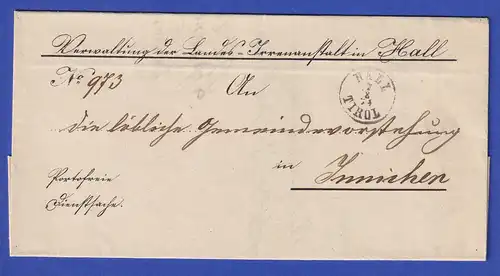 Verwaltung der Landes-Irrenanstalt in Hall
No 973
HALL
TIROL
An
die löbliche Gemeindevorstehung
in
Innichen
Portofreie
Dienstsache.